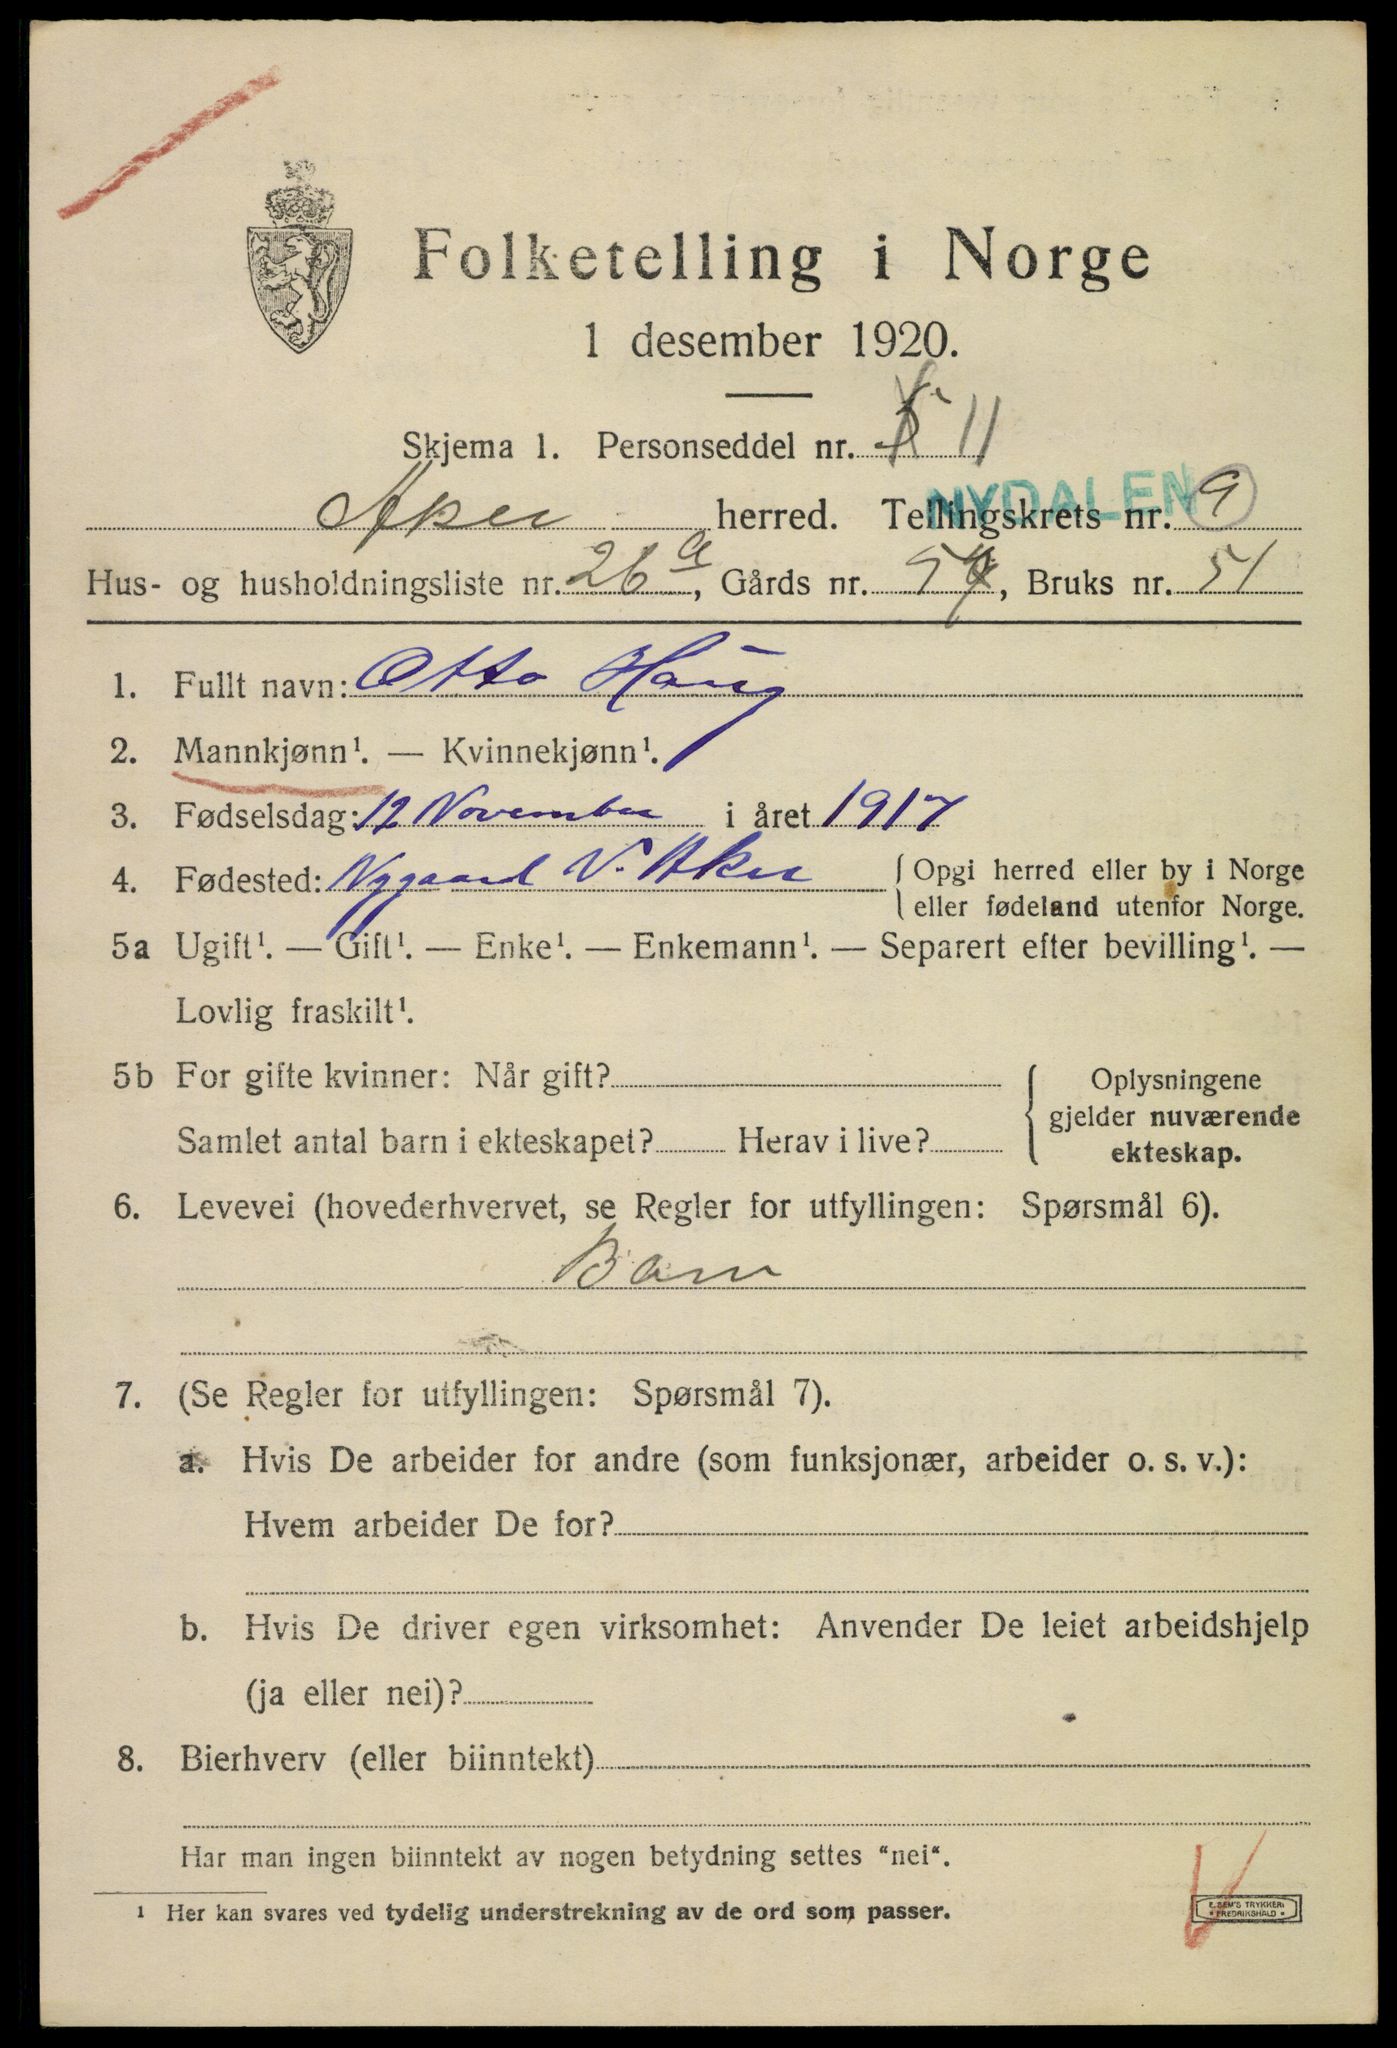 Folketelling i Norge
1 desember 1920.
Skjema 1. Personseddel nr. 11
Aker herred. Tellingskrets nr. 9
NYDALEN
Hus- og husholdningsliste nr. 26a, Gårds nr. , Bruks nr. 51
1. Fullt navn: Otto Haug
2. Mannkjønn¹. — Kvinnekjønn¹.
3. Fødselsdag: 12 November i året 1917
4. Fødested: Nygaard V. Aker { Opgi herred eller by i Norge
eller fødeland utenfor Norge.
5a Ugift¹. — Gift¹. — Enke¹. — Enkemann¹. — Separert efter bevilling¹. —
Lovlig fraskilt¹.
5b For gifte kvinner: Når gift? { Oplysningene
gjelder nuværende
Samlet antal barn i ekteskapet? Herav i live?
ekteskap.
6. Levevei (hovederhvervet, se Regler for utfyllingen: Spørsmål 6).
Barn
7. (Se Regler for utfyllingen: Spørsmål 7).
a. Hvis De arbeider for andre (som funksjonær, arbeider o. s. v.):
Hvem arbeider De for?
b. Hvis De driver egen virksomhet: Anvender De leiet arbeidshjelp
(ja eller nei)?
8. Bierhverv (eller biinntekt)
Har man ingen biinntekt av nogen betydning settes "nei".
¹ Her kan svares ved tydelig understrekning av de ord som passer.
E. SEM'S TRYKKERI
FREDRIKSHALD